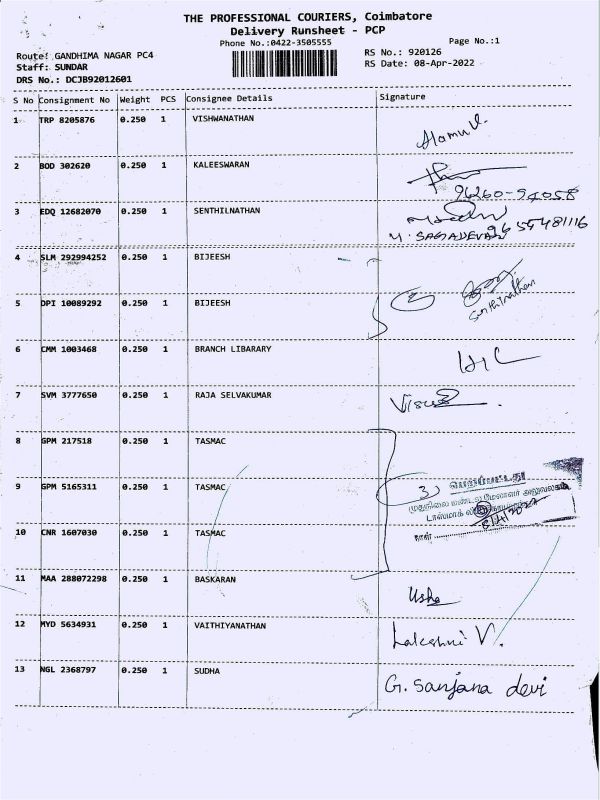 THE PROFESSIONAL COURIERS, Coimbatore
Delivery Runsheet - PCP
Phone No.:0422-3505555
Page No.:1
Route: GANDHIMA NAGAR PC4
RS No.: 920126
Staff: SUNDAR
RS Date: 08-Apr-2022
DRS No.: DCJB92012601
S No Consignment No Weight PCS Consignee Details Signature
1 TRP 8205876 0.250 1 VISHWANATHAN
2 BOD 302620 0.250 1 KALEESWARAN
96260-94058
3 EDQ 12682070 0.250 1 SENTHILNATHAN
9655481116
M. SAGADEVAN
4 SLM 292994252 0.250 1 BIJEESH
5 DPI 10089292 0.250 1 BIJEESH
Senthilnathan
6 CMM 1003468 0.250 1 BRANCH LIBARARY
7 SVM 3777650 0.250 1 RAJA SELVAKUMAR
8 GPM 217518 0.250 1 TASMAC
பெறப்பட்டது
9 GPM 5165311 0.250 1 TASMAC 3
முதுநிலை மண்டல மேலாளர் அலுவலகம்
டாஸ்மாக்
8/4/2022
நாள்
10 CNR 1607030 0.250 1 TASMAC
11 MAA 288072298 0.250 1 BASKARAN Usha
12 MYD 5634931 0.250 1 VAITHIYANATHAN Lakshmi V.
13 NGL 2368797 0.250 1 SUDHA G. Sanjana devi